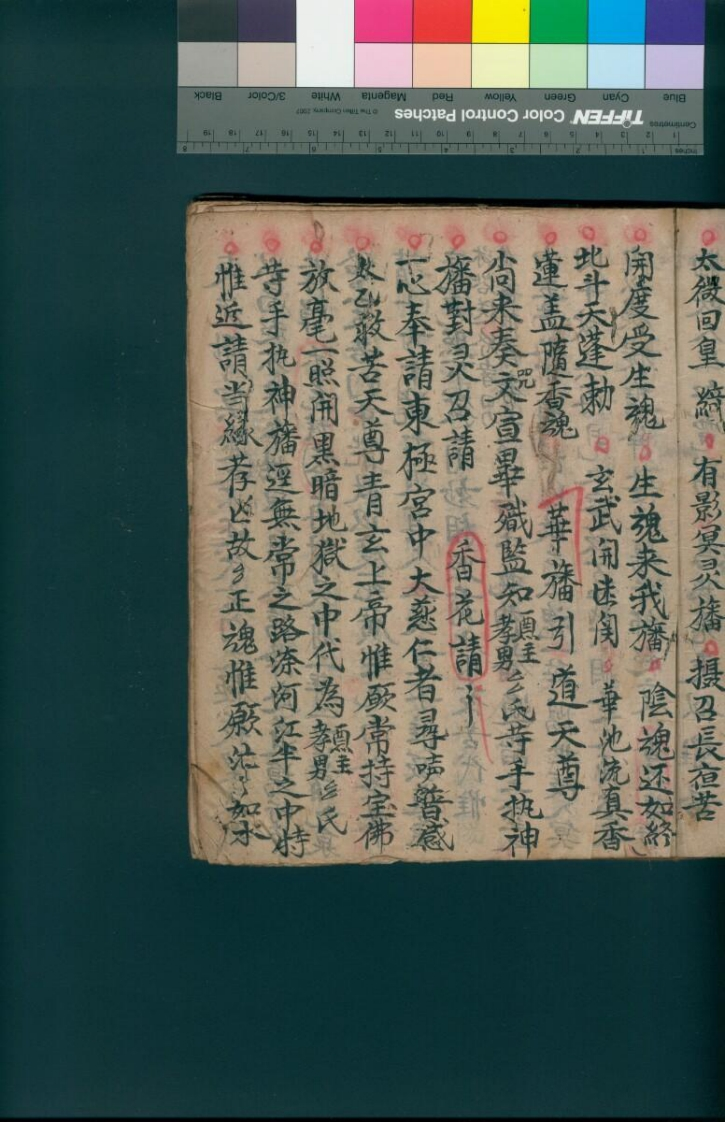 太微回皇 有影冥灵旛 摄召長夜苦
開度受生魂 生魂来我旛 陰魂还如終
北斗天蓬勅 玄武開 華池流真香
蓮盖隨香魂 華旛引道天尊
尚来奏文宣畢職監知孝男厶氏䓁手执神
旛對灵召請 香花請
一心奉請東極宮中大慈仁者尋声普感
太乙救苦天尊青玄上帝惟願常持宝佛
放毫一照開黒暗地獄之中代為孝男厶氏
䓁手执神旛逕無常之路 河江半之中特
惟近請当緣荐亾故彡正魂惟願 如水
Blue
Cyan
Green
Yellow
Red
Magenta
White
3/Color
Black
TIFFEN Color Control Patches
© The Tiffen Company, 2007
Centimetres
Inches
1 2 3 4 5 6 7 8 9 10 11 12 13 14 15 16 17 18 19
1 2 3 4 5 6 7 8